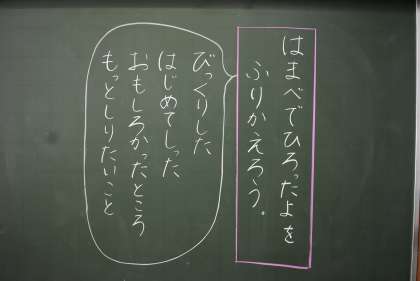 はまべでひろったよを
ふりかえろう。
びっくりした
はじめてしった
おもしろかったところ
もっとしりたいこと